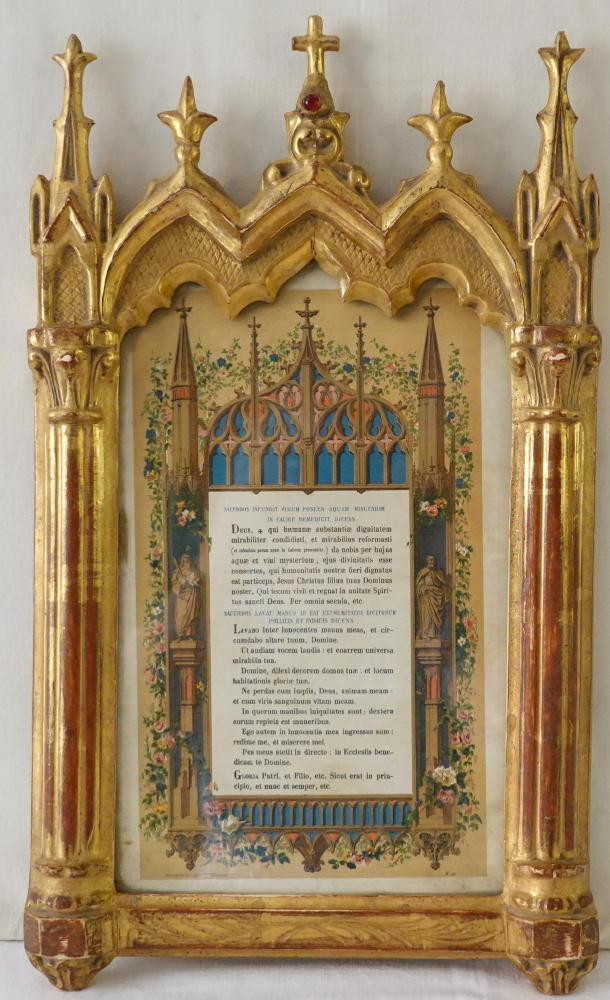 SACERDOS INFUNDIT VINUM POSTEA AQUAM MISCENDAM
IN CALICE BENEDICIT, DICENS
DEUS, + qui humanæ substantiæ dignitatem
mirabiliter condidisti, et mirabilius reformasti
da nobis per hujus
aquæ et vini mysterium, ejus divinitatis esse
consortes, qui humanitatis nostræ fieri dignatus
est particeps, Jesus Christus filius tuus Dominus
noster. Qui tecum vivit et regnat in unitate Spiri-
tus sancti Deus. Per omnia secula, etc.
SACERDOS LAVAT MANUS ID EST EXTREMITATES DIGITORUM
POLLICIS ET INDICIS DICENS
LAVABO inter innocentes manus meas, et cir-
cumdabo altare tuum, Domine.
Ut audiam vocem laudis : et enarrem universa
mirabilia tua.
Domine, dilexi decorem domus tuæ : et locum
habitationis gloriæ tuæ.
Ne perdas cum impiis, Deus, animam meam :
et cum viris sanguinum vitam meam.
In quorum manibus iniquitates sunt : dextera
eorum repleta est muneribus.
Ego autem in innocentia mea ingressus sum :
redime me, et miserere mei.
Pes meus stetit in directo : in Ecclesiis bene-
dicam te Domine.
GLORIA Patri, et Filio, etc. Sicut erat in prin-
cipio, et nunc et semper, etc.